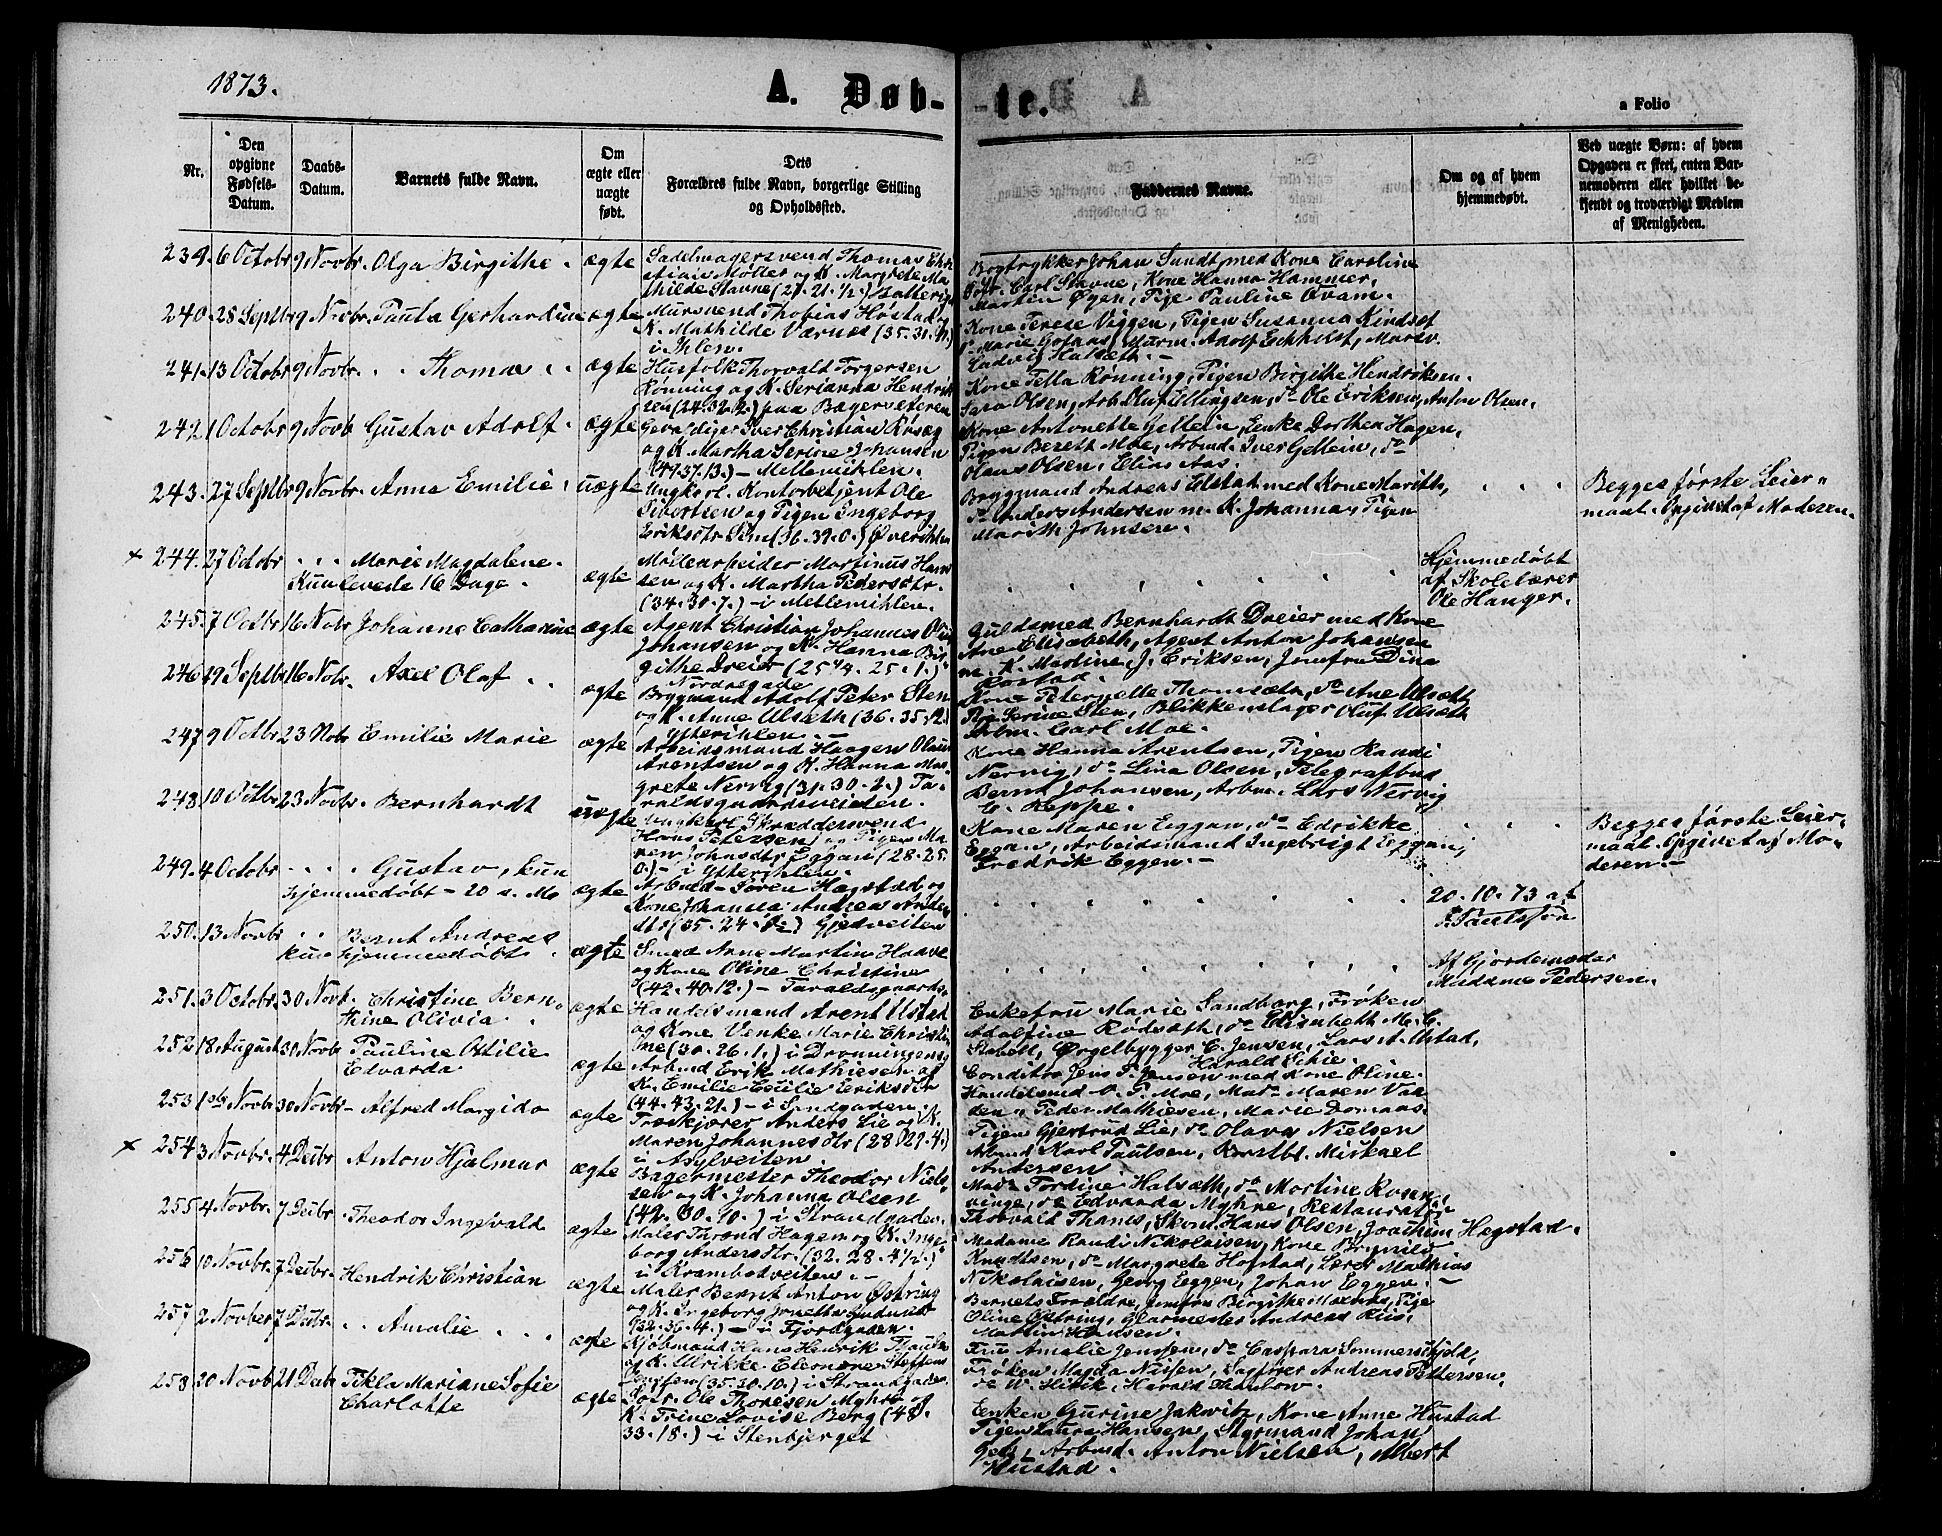 1873.
A. Døb-
-te.
a Folio
Nr.
Den
opgivne
Fødsels-
Datum.
Daabs-
Datum.
Barnets fulde Navn.
Om
ægte eller
uægte
født.
Dets
Forældres fulde Navn, borgerlige Stilling
og Opholdssted.
Faddernes Navne.
Om og af hvem
hjemmedøbt.
Ved uægte Børn: af hvem
Opgaven er skeet, enten Bar-
nemoderen eller hvilket be-
kjendt og troværdigt Medlem
af Menigheden.
239. 6 Octobr 9 Novbr. Olga Birgithe. ægte
Sadelmagersvend Thomas Chri
stian Møller og K. Margrete Ma
thilde Stavne (27. 21. 1/2.)
Bogtrykker Johan Sundt med Kone Caroline
Carl Stavne, Kone Hanna Hammer,
Martin Øyen, Pige Pauline Qvam.
240. 28 Septbr 9 Novbr. Paula Gerhardine ægte
Mursvend Thobias Høstad og
K. Mathilde Værnes (35. 31.
i Ihlen.
Kone Terese Viggen, Pigen Susanna Kindset
Marie Murm. Adolf
Ludvig Halseth.
241. 13 Octobr 9 Novbr. Thoma ægte
Husfolk Thorvald Torgersen
Rønning og K. Serianna Hendrik
sen (24. 32. 2.) paa Bagerveiten
Kone Tella Rønning, Pigen Birgithe Hendriksen.
Sara Olsen, Arb. do Ole Eriksen, Anton Olsen.
242. 1 Octobr 9 Novb Gustav Adolf. ægte
Gevaldiger Iver Christian
og K. Martha Serine Johansen
(49. 37. 13.) - Mellemihlen.
Kone Antonette Gellein, Enke Dorthea Hagen,
Pigen Bereth Moe, Arbmd. Iver Gellein, do
Olaus Olsen, Elias Aas.
243. 27 Septbr 9 Novbr. Anna Emilie. uægte
Ungkarl. Kontorbetjent Ole
Sivertsen og Pigen Ingeborg
Eriksdtr (36. 39. 0.) Øverihlen
Bryggmand Andreas Elstad med Kone Marith,
do Anders Andersen m. K. Johanna, Pigen
Marith Johnsen.
Begges første Leier-
maal. Opgivet af Moderen.
x 244. 27 Octobr Marie Magdalene.
Kun levede 16 Dage. ægte
Møllearbeider Martinus Han
sen og K. Martha Pedersdtr.
(34. 30. 7.) - i Mellemihlen.
Hjemmedøbt
af Skolelærer
Ole Hanger.
245. 7 Octbr 16 Novbr Johanne Catharine ægte
Agent Christian Johannes
Johansen og K. Hanna Bir
githe Dreier (25 1/4. 25. 1.)
Nordregade
Guldsmed Bernhardt Dreier med Kone
Ane Elisabeth, Agent Anton Johansen
m. K. Martine, J. Eriksen, Jomfru Dina
246. 19 Septbr 16 Novbr. Axel Olaf ægte
Bryggmand Adolf Peter Sten
og K. Anne Ulseth (36. 35. 12.)
Ytterihlen.
Kone Peternelle Thomseth, do Ane Ulseth,
Serine Sten, Blikkenslager Oluf Ulseth
Arbm. Carl Moe.
247. 9 Octbr 23 Nobr Emilie Marie ægte
Arbeidsmand Haagen Olaus
Arentsen og K. Hanna Mar-
grete Nervig (31. 30. 2.) Ta-
raldsgaardsveiten.
Kone Hanna Arentsen, Pigen Randi
Nervig, do Lina Olsen, Telegrafbud
Bernt Johansen, Arbm. Lars Nervig
C. Heppe.
248. 10 Octbr 23 Novbr. Bernhardt uægte
Ungkarl Skræddersvend
Hans Petersen og Pigen Ma
ren Johnsdtr Eggan (28. 25.
0.) - i Ytterihlen.
Kone Maren Eggan, do Edrikke
Eggan, Arbeidsmand Ingebrigt Eggan,
Fredrik Eggen.
Begges første Leier-
maal. Opgivet af Mo-
deren.
249. 4 Octobr Gustav, kun
hjemmedøbt - 20 s. M. ægte
Arbmd. Søren Hagstad og
Kone Johanna
(35. 24. Gjedveiten
20. 10. 73 af
Paulsson
250. 13 Novbr Bernt Andreas
kun hjemmedøbt. ægte
Smed Arne Martin Haave
og Kone Oline Christine
(42. 40. 12.) - Taraldsgaards.
Af Gjordemoder
Madame Pedersen.
251. 3 Octobr. 30 Novb. Christine Bern-
thine Olivia. ægte
Handelsmand Arent Ustad
og Kone Venke Marie Christi
ne (30. 26. 1.) i Dronningensg
Enkefru Marie Sandborg, Frøken
Adolfine Rødseth, do Elisabeth M. C.
Stabell, Orgelbygger C. Jensen, Lars A. Ustad,
Harald Schie.
252. 18 August 30 Novb Pauline Otilie
Edvarda ægte
Arbmd Erik Mathiesen og
K. Emilie Cecilie Eriksdtr
(44. 43. 21.) - i Sandgaden.
Conditor Jens P. Jensen med Kone Oline.
Handelsmd O. P. Moe, Mad- Maren
Peder Mathiesen, Marie
253. 1ste Novbr 30 Novbr- Alfred Margido ægte
Anders Lie og K.
Maren Johannesdtr (28. 29. 4.)
i Asylveiten.
Pigen Gjertrud Lie, do Olava Nielsen
Arbmd Karl Paulsen, Mickael
Andersen
x 254. 3 Novbr. 4 Decbr Anton Hjalmar ægte
Bagermester Theodor Niel-
sen og K. Johanna Olsen
(42. 30. 10.) i Strandgaden.
Mad- Tordine Halseth, do Martine Rosen
vinge, do Edvarda Myhre, Restauratør
Thorvald Thanes, Hans Olsen, Joachim Hegstad.
255. 4 Novbr. 7 Decbr. Theodor Ingevald ægte
Maler Tarand Hagen og K. Inge-
borg Andersdtr. (32. 28. 4 1/2.)
i Krambodveiten.
Madame Randi Nikolaisen, Kone Brynild
Knudtsen, do Margrete Hofstad, Lærer Mathias
Nikolaisen, Georg Eggen, Johan Eggen.
256. 10 Novbr. 7 Decbr. Hendrik Christian ægte
Maler Bernt Anton Østring
og K. Ingeborg
(32. 36. 4.) - i Fjordgaden.
Barnets Forældre, Jomfru Birgithe Pige
Oline Østring, Glarmester Andreas Riis,
Martin Hansen.
257. 2 Novber 7 Decbr. Amalie ægte
Kjøbmand Hans Henrik Thaulow
og K. Ulrikke Elenore Steffens
(35. 30. 10.) i Strandgaden.
Fru Amalie Jenssen, do Caspara Sommerschield,
Frøken Magda Nilsen, Sagfører Andreas Pettersen,
do W. Harald Thaulow.
258. 20 Novb 21 Decb Tekla Mariane Sofie
Charlotte ægte
Ole Thoresen Myhre og
K. Trine Lovise Berg (48.
33. 18.) i Stenbjerget
Enken Gurine Kone Anne Hustad
Pigen Laura Hansen, Styrmand Johan
Arbmd. Anton Nielsen, Albert
Hustad.